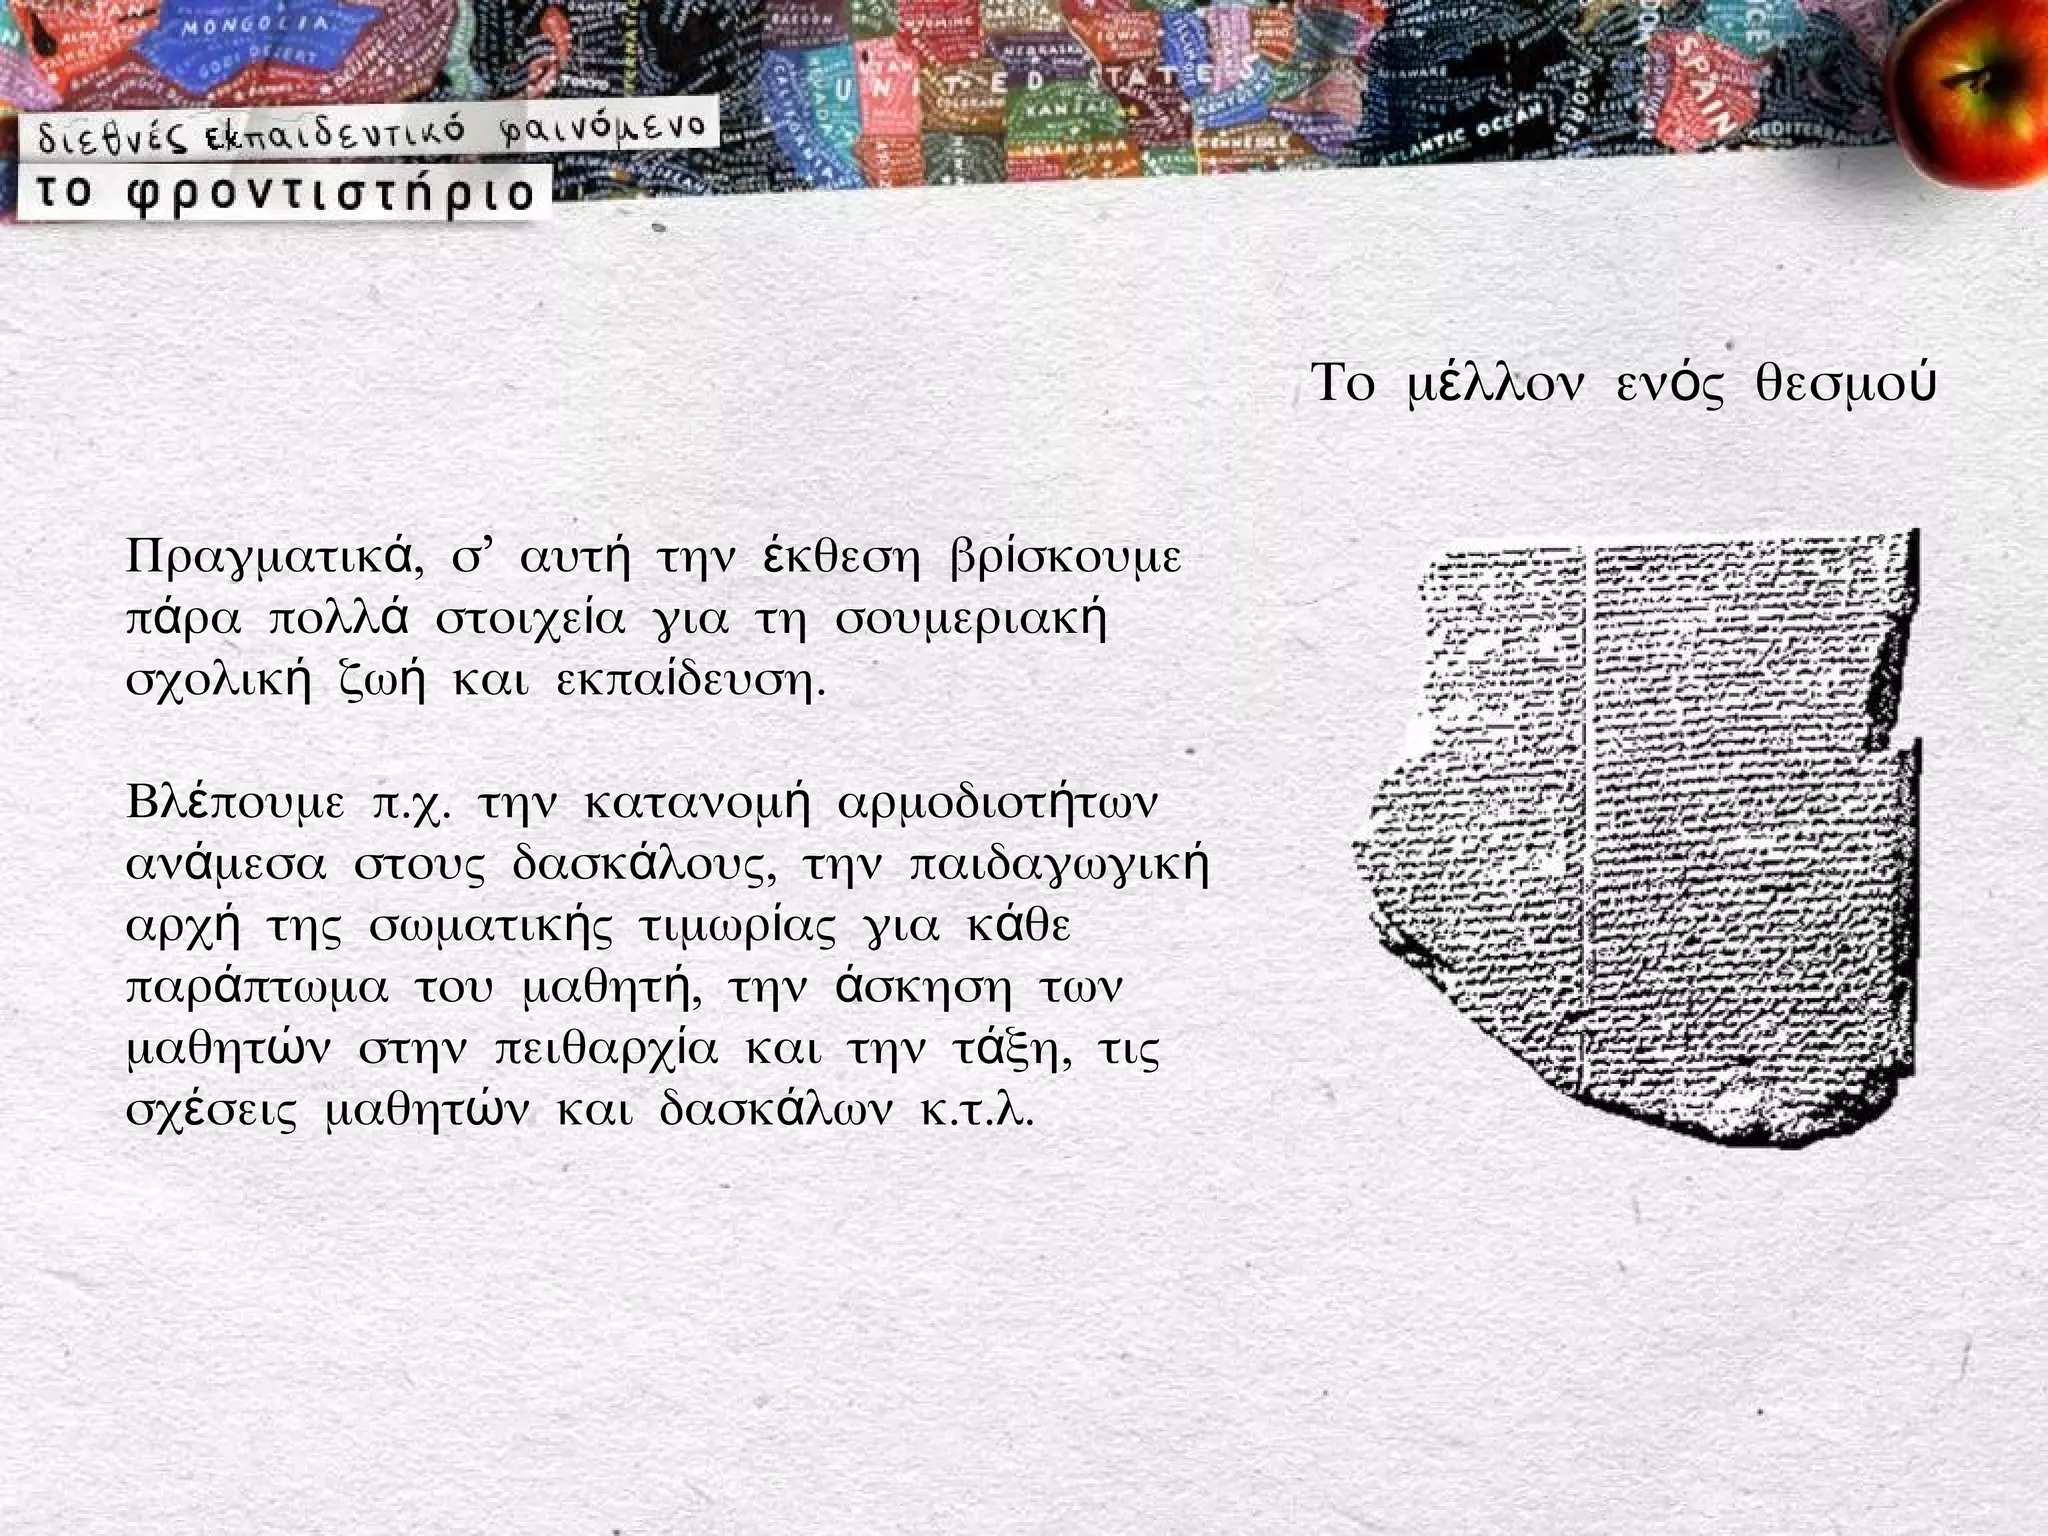 MONGOLIA
GOBI DESERT
TOKYO
UNITED STATES
NEBRASKA
IOWA
KANSAS
COLORADO
OKLAHOMA
CALIFORNIA
ATLANTIC OCEAN
AZORES
SPAIN
διεθνές εκπαιδευτικό φαινόμενο
το φροντιστήριο
Το μέλλον ενός θεσμού
Πραγματικά, σ’ αυτή την έκθεση βρίσκουμε
πάρα πολλά στοιχεία για τη σουμεριακή
σχολική ζωή και εκπαίδευση.
Βλέπουμε π.χ. την κατανομή αρμοδιοτήτων
ανάμεσα στους δασκάλους, την παιδαγωγική
αρχή της σωματικής τιμωρίας για κάθε
παράπτωμα του μαθητή, την άσκηση των
μαθητών στην πειθαρχία και την τάξη, τις
σχέσεις μαθητών και δασκάλων κ.τ.λ.